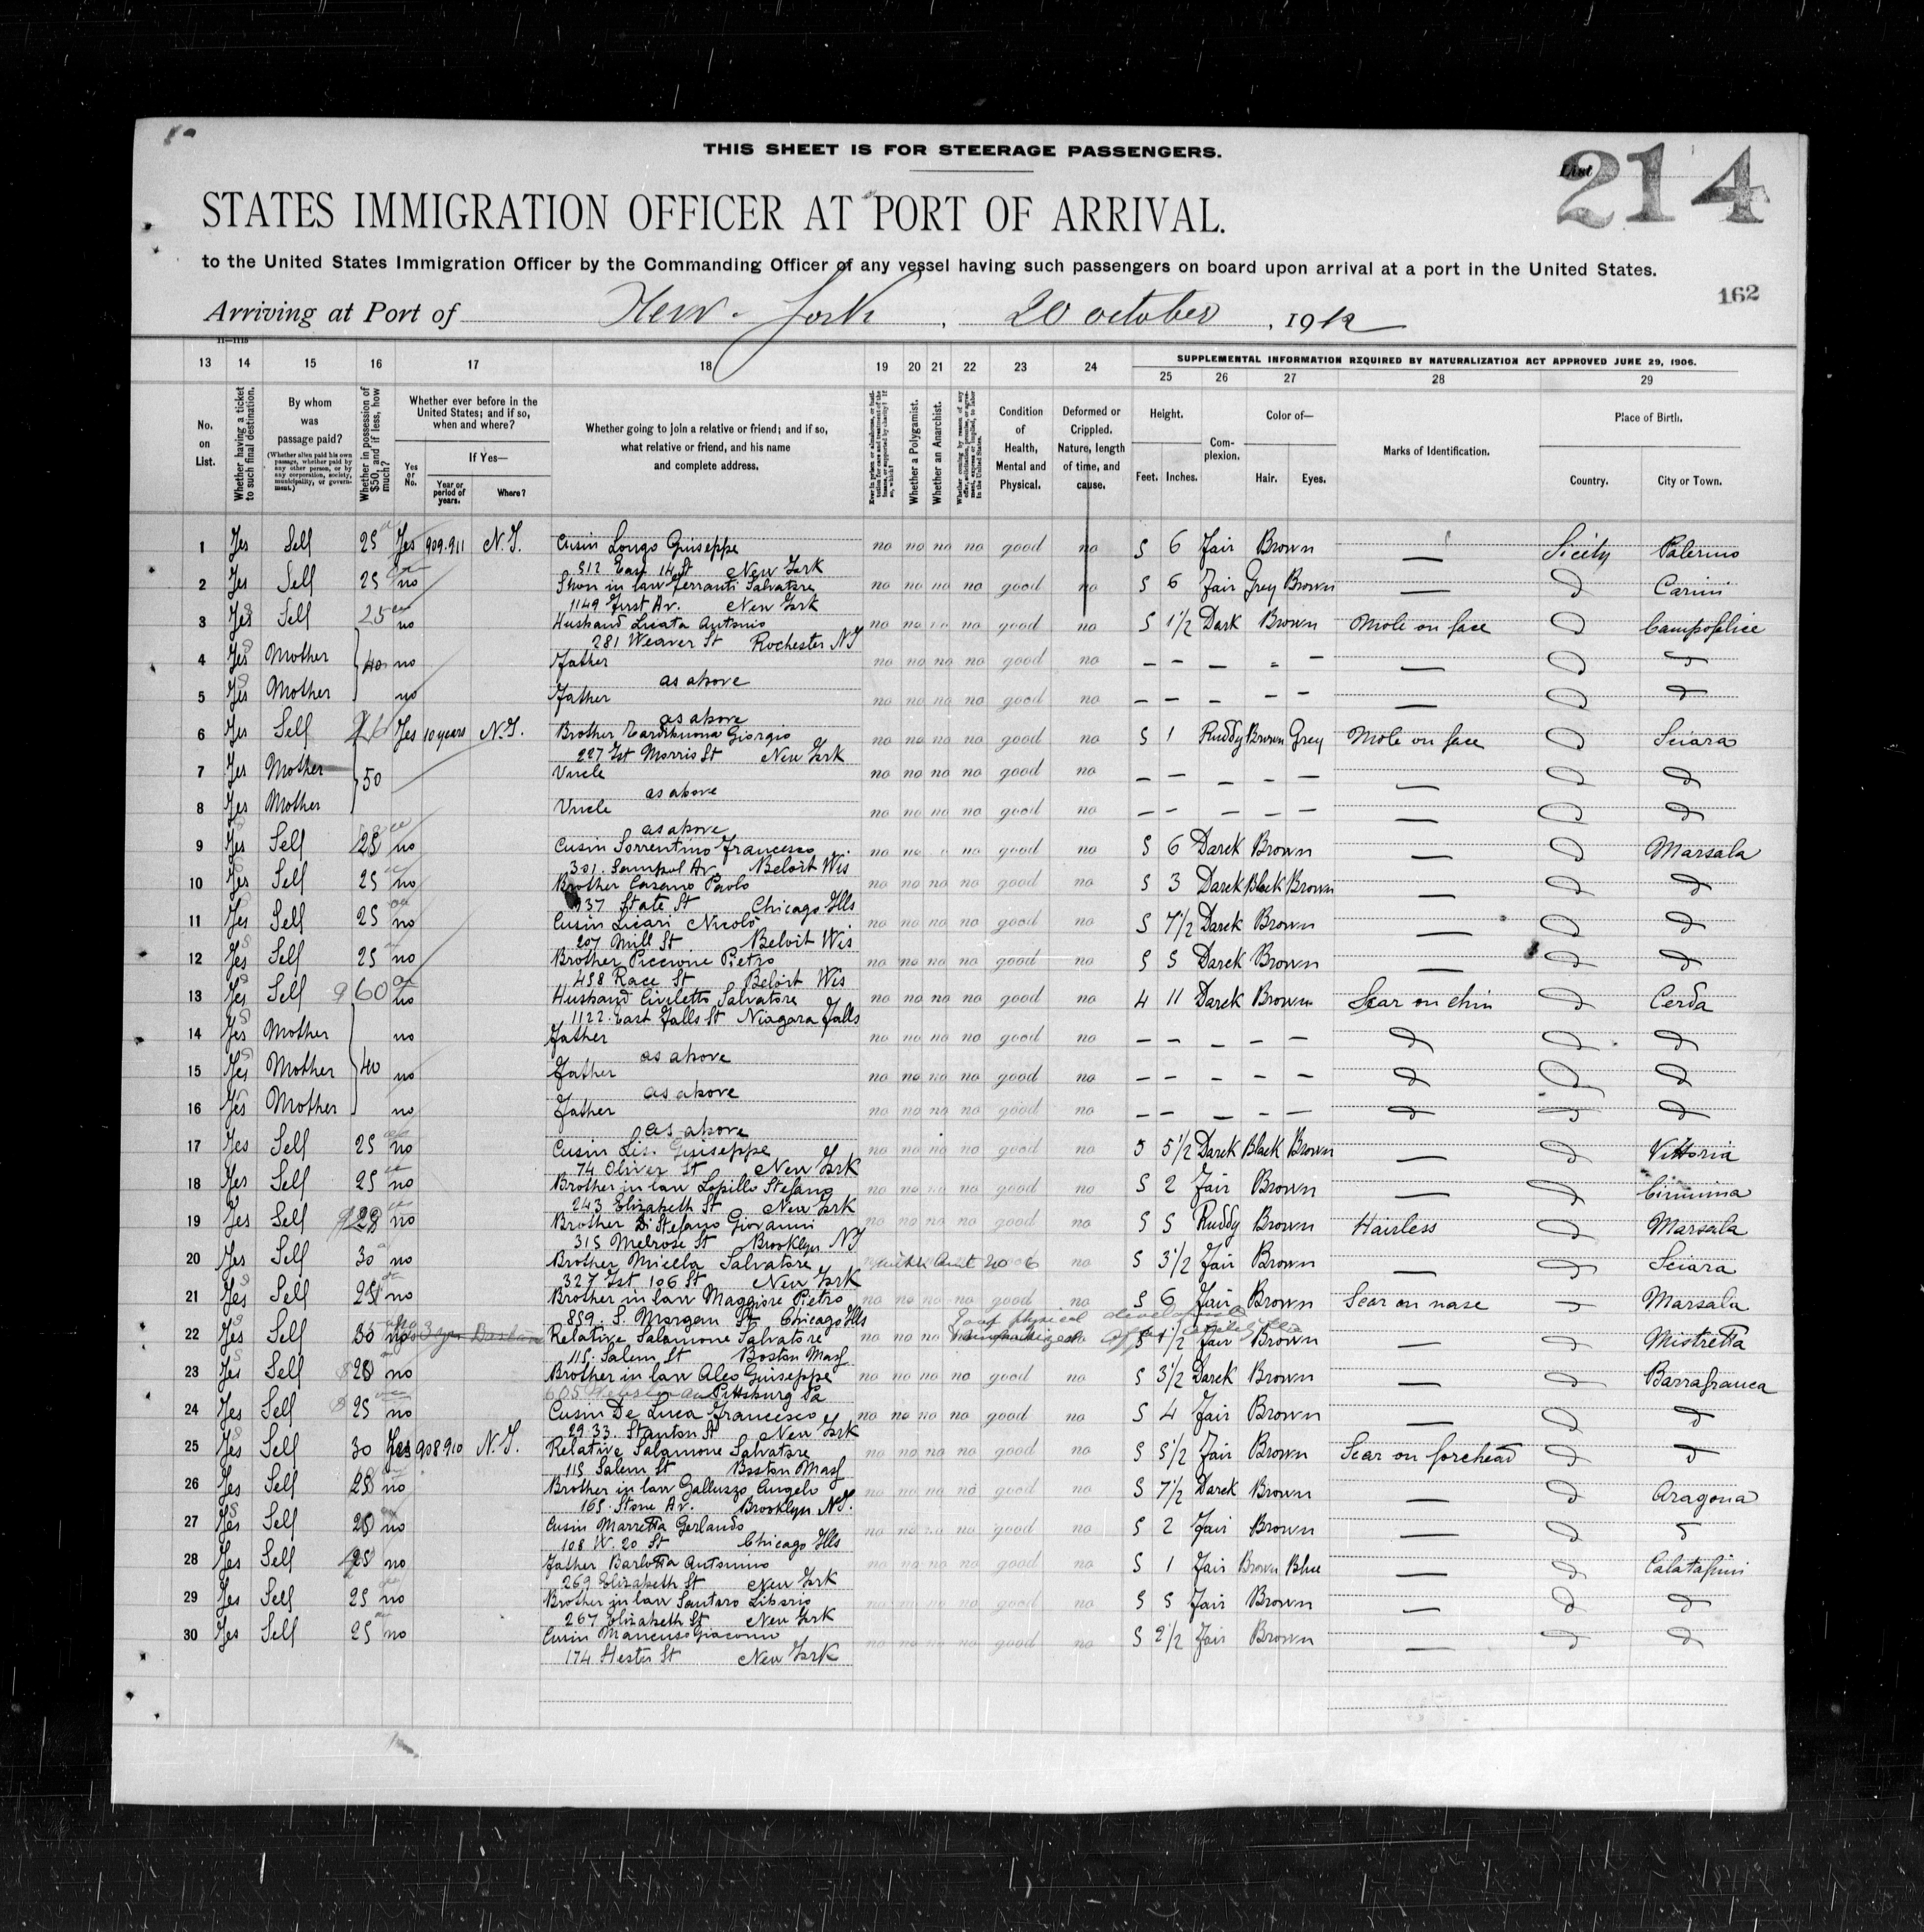 THIS SHEET IS FOR STEERAGE PASSENGERS.
List 214
STATES IMMIGRATION OFFICER AT PORT OF ARRIVAL.
to the United States Immigration Officer by the Commanding Officer of any vessel having such passengers on board upon arrival at a port in the United States.
162
Arriving at Port of New-York, 20 october, 1912
11—1115
SUPPLEMENTAL INFORMATION REQUIRED BY NATURALIZATION ACT APPROVED JUNE 29, 1906.
13 14 15 16 17 18 19 20 21 22 23 24 25 26 27 28 29
No. on List.
Whether having a ticket to such final destination.
By whom was passage paid?
(Whether alien paid his own passage, whether paid by any other person, or by any corporation, society, municipality, or government.)
Whether in possession of $50, and if less, how much?
Whether ever before in the United States; and if so, when and where?
Yes or No.
If Yes—
Year or period of years.
Where?
Whether going to join a relative or friend; and if so, what relative or friend, and his name and complete address.
Whether a Polygamist.
Whether an Anarchist.
Condition of Health, Mental and Physical.
Deformed or Crippled. Nature, length of time, and cause.
Height.
Feet. Inches.
Complexion.
Color of—
Hair. Eyes.
Marks of Identification.
Place of Birth.
Country. City or Town.
1 Yes Self 25 Yes 909.911 N.Y. Cusin Longo Giuseppe no no no no good no 5 6 Fair Brown — Sicily Palermo
512 East 14 St New York
2 Yes Self 25 no Shon in law Ferranti Salvatore no no no no good no 5 6 Fair Grey Brown — d Carini
1149 First Av. New York
3 Yes Self 25 no Husband Licata Antonio no no no no good no 5 1/2 Dark Brown Mole on face d Campofelice
281 Weaver St Rochester NY
4 Yes Mother 40 no Father no no no no good no — — — — — — d d
as above
5 Yes Mother no Father no no no no good no — — — — — d d
as above
6 Yes Self Yes 10 years N.Y. Brother Giorgio no no no no good no 5 1 Ruddy Brown Grey Mole on face d Sciara
227 Est Morris St New York
7 Yes Mother 50 Uncle no no no no good no — — — — — — d d
as above
8 Yes Mother Uncle no no no no good no — — — — — — d d
as above
9 Yes Self 25 no Cusin Sorrentino Francesco no no no good no 5 6 Darck Brown — d Marsala
301. Av. Beloit Wis
10 Yes Self 25 no Brother Casano Paolo no no no no good no 5 3 Darck Black Brown — d d
State St Chicago Ills
11 Yes Self 25 no Cusin Licari Nicolò no no no no good no 5 7 1/2 Darck Brown — d d
207 Mill St Beloit Wis
12 Yes Self 25 no Brother Piccione Pietro no no no no good no 5 5 Darck Brown — d d
458 Race St Beloit Wis
13 Yes Self 60 no Husband Civiletto Salvatore no no no no good no 4 11 Darck Brown Scar on chin d Cerda
1122. East Falls St Niagara Falls
14 Yes Mother no Father no no no no good no — — — — — d d d
as above
15 Yes Mother 40 no Father no no no no good no — — — — — d d d
as above
16 Yes Mother no Father no no no no good no — — — — — d d d
as above
17 Yes Self 25 no Cusin Giuseppe no no no no good no 5 5 1/2 Darck Black Brown — d Vittoria
74 Oliver St New York
18 Yes Self 25 no Brother in law Lopillo Stefano no no no no good no 5 2 Fair Brown — d Ciminna
243 Elizabeth St New York
19 Yes Self no Brother Di Stefano Giovanni no no no no good no 5 5 Ruddy Brown Hairless d Marsala
315 Melrose St Brooklyn NY
20 Yes Self 30 no Brother Micela Salvatore no 5 3 1/2 Fair Brown — d Sciara
327 Est 106 St New York
21 Yes Self 25 no Brother in law Maggiore Pietro no no no no good no 5 6 Fair Brown Scar on nase — Marsala
859. S. Morgan St Chicago Ills
22 Yes Self 30 Relative Salamone Salvatore no no no 5 1 1/2 Fair Brown — d Mistretta
115. Salem St Boston Mass
23 Yes Self no Brother in law Aleo Giuseppe no no no no good no 5 3 1/2 Darck Brown — d Barrafranca
605 Pittsburg Pa
24 Yes Self 25 no Cusin De Luca Francesco no no no no good no 5 4 Fair Brown — d d
29 33. Stanton St New York
25 Yes Self 30 Yes 908 910 N.Y. Relative Salamone Salvatore no no no no good no 5 5 1/2 Fair Brown Scar on forehead d d
115 Salem St Boston Mass
26 Yes Self 25 no Brother in law Galluzzo Angelo no no no no good no 5 7 1/2 Darck Brown — d Aragona
165. Stone Av. Brooklyn N.Y.
27 Yes Self 25 no Cusin Marretta Gerlando no no no no good no 5 2 Fair Brown — d d
108 W. 20 St Chicago Ills
28 Yes Self 25 no Father Barlotta Antonino no no no no good no 5 1 Fair Brown Blue — d Calatafimi
269 Elizabeth St New York
29 Yes Self 25 no Brother in law Santoro Liborio no no no no good no 5 5 Fair Brown — d d
267 Elizabeth St New York
30 Yes Self 25 no Cusin Mancuso Giacomo no no no no good no 5 2 1/2 Fair Brown — d d
174 Hester St New York